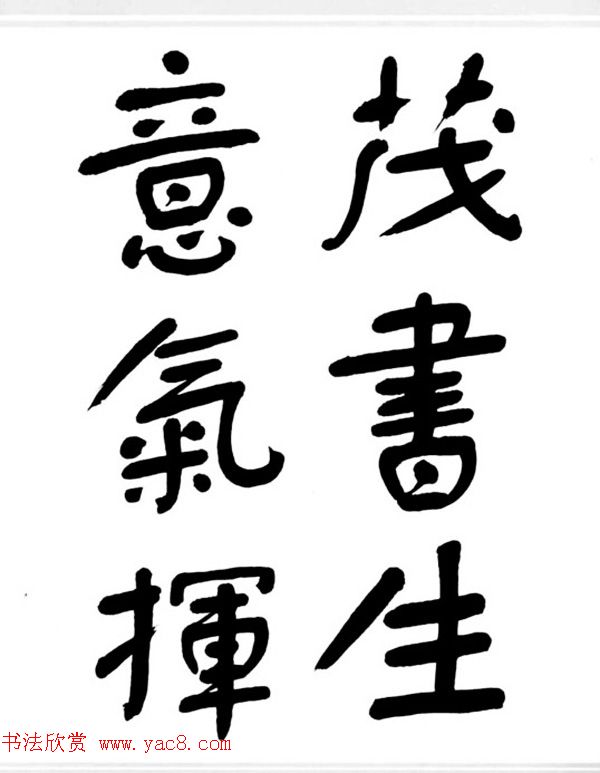 茂書生
意氣揮
书法欣赏 www.yac8.com